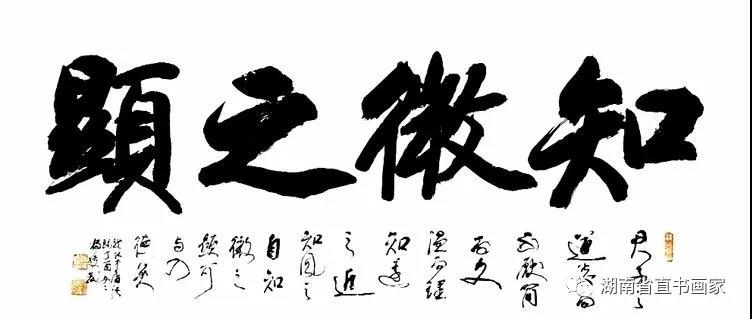 知微之顯
君子之
道淡而
不厭簡
而文
溫而理
知遠
之近
知風之
自知
微之
顯可
与入
德矣
湖南省直书画家